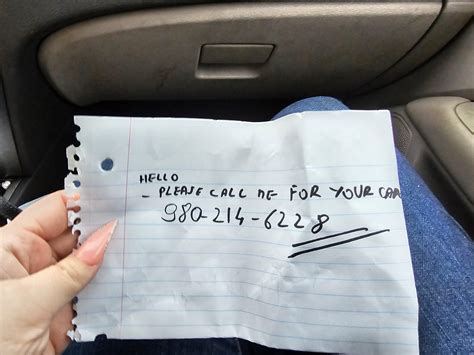 HELLO
- PLEASE CALL ME FOR YOUR CAR
980-214-6228